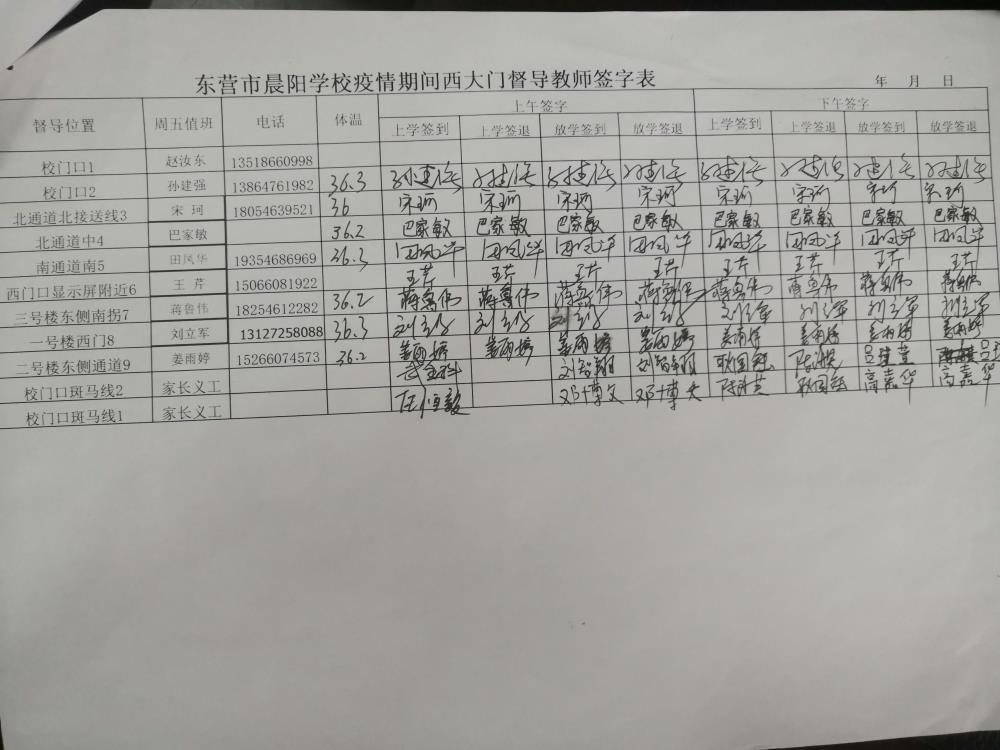 东营市晨阳学校疫情期间西大门督导教师签字表
年 月 日
督导位置 周五值班 电话 体温 上午签字 下午签字
上学签到 上学签退 放学签到 放学签退 上学签到 上学签退 放学签到 放学签退
校门口1 赵汝东 13518660998
校门口2 孙建强 13864761982 36.3
北通道北接送线3 宋珂 18054639521 36 宋珂 宋珂 宋珂 宋珂 宋珂 宋珂 宋珂 宋珂
北通道中4 巴家敏 36.2 巴家敏 巴家敏 巴家敏 巴家敏 巴家敏 巴家敏 巴家敏 巴家敏
南通道南5 田凤华 19354686969 36.3 田凤华 田凤华 田凤华 田凤华 田凤华 田凤华 田凤华 田凤华
西门口显示屏附近6 王芹 15066081922 王芹 王芹 王芹 王芹 王芹 王芹 王芹 王芹
三号楼东侧南拐7 蒋鲁伟 18254612282 36.2 蒋鲁伟 蒋鲁伟 蒋鲁伟 蒋鲁伟 蒋鲁伟 蒋鲁伟 蒋鲁伟 蒋鲁伟
一号楼西门8 刘立军 13127258088 36.3 刘立军 刘立军 刘立军 刘立军 刘立军 刘立军 刘立军 刘立军
二号楼东侧通道9 姜雨婷 15266074573 36.2 姜雨婷 姜雨婷 姜雨婷 姜雨婷 姜雨婷 姜雨婷 姜雨婷
校门口斑马线2 家长义工 刘智翔 刘智翔
校门口斑马线1 家长义工 邓博文 邓博文 高嘉华 高嘉华